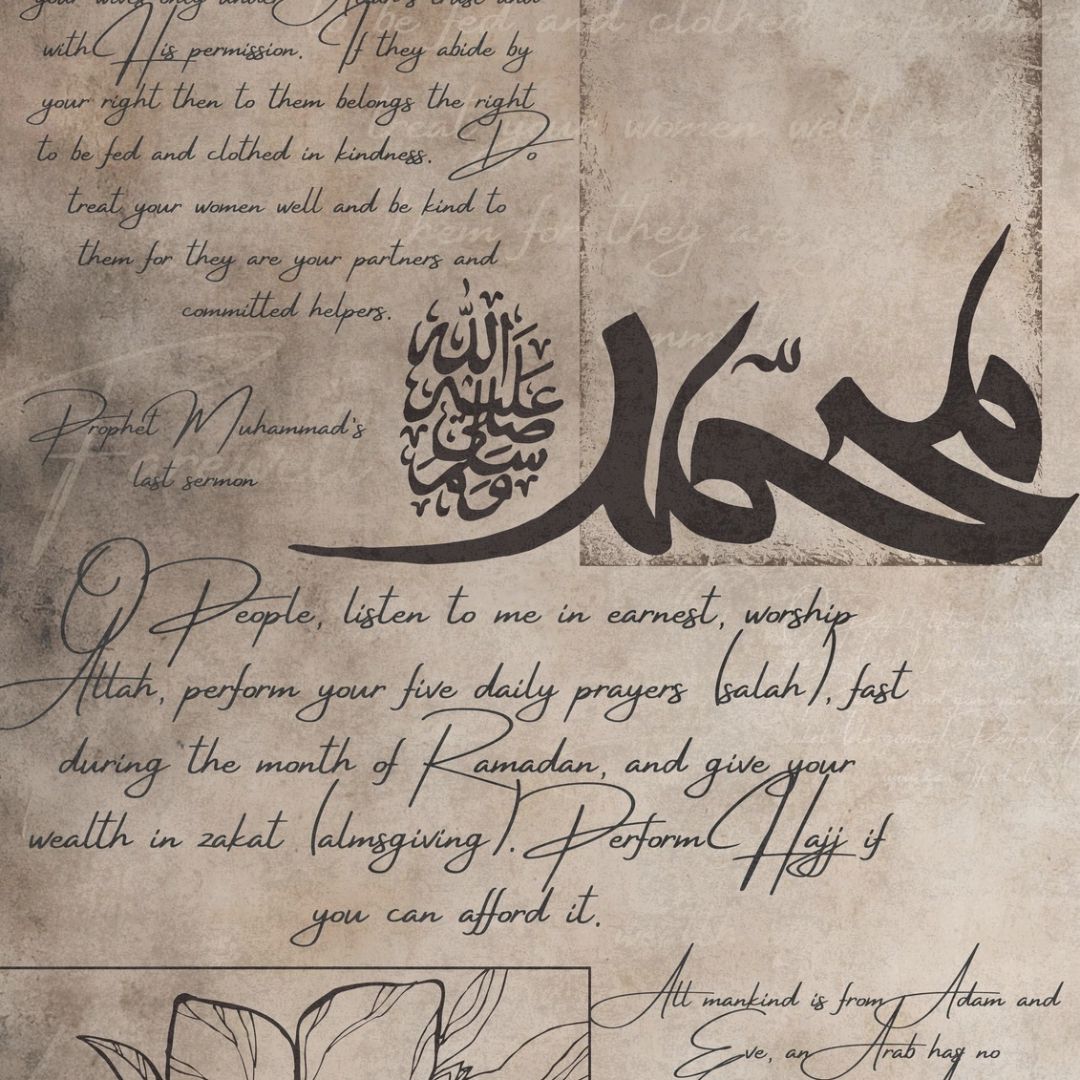 your wives only under Allah's trust and
with His permission. If they abide by
your right then to them belongs the right
to be fed and clothed in kindness. Do
treat your women well and be kind to
them for they are your partners and
committed helpers.
be fed and clothed
treat your women well
them for they
محمد
الله
عليه
صلى
وسلم
Prophet Muhammad's
last sermon
O People, listen to me in earnest, worship
Allah, perform your five daily prayers (salah), fast
during the month of Ramadan, and give your
wealth in zakat (almsgiving). Perform Hajj if
you can afford it.
All mankind is from Adam and
Eve, an Arab has no